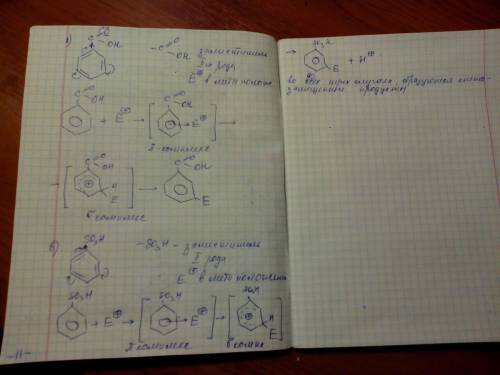 1)
O
C
OH
- C
O
OH
заместитель
II рода
E⊕ в мета полож
C
O
OH
+ E⊕ → [
C
O
OH
→ E⊕ ] →
π-комплекс
→ [
C
O
OH
⊕
H
E
] →
C
O
OH
E
σ комплекс
в)
SO₃H
-SO₃H - заместитель
рода
E⊕ в мета положение
SO₃H
+ E⊕ → [
SO₃H
→ E⊕ ] → [
SO₃H
H
E
]
π комплекс
-11-
→
SO₃H
E
+ H⊕
во всех трех случаях, образуются мета-
замещенные продукты